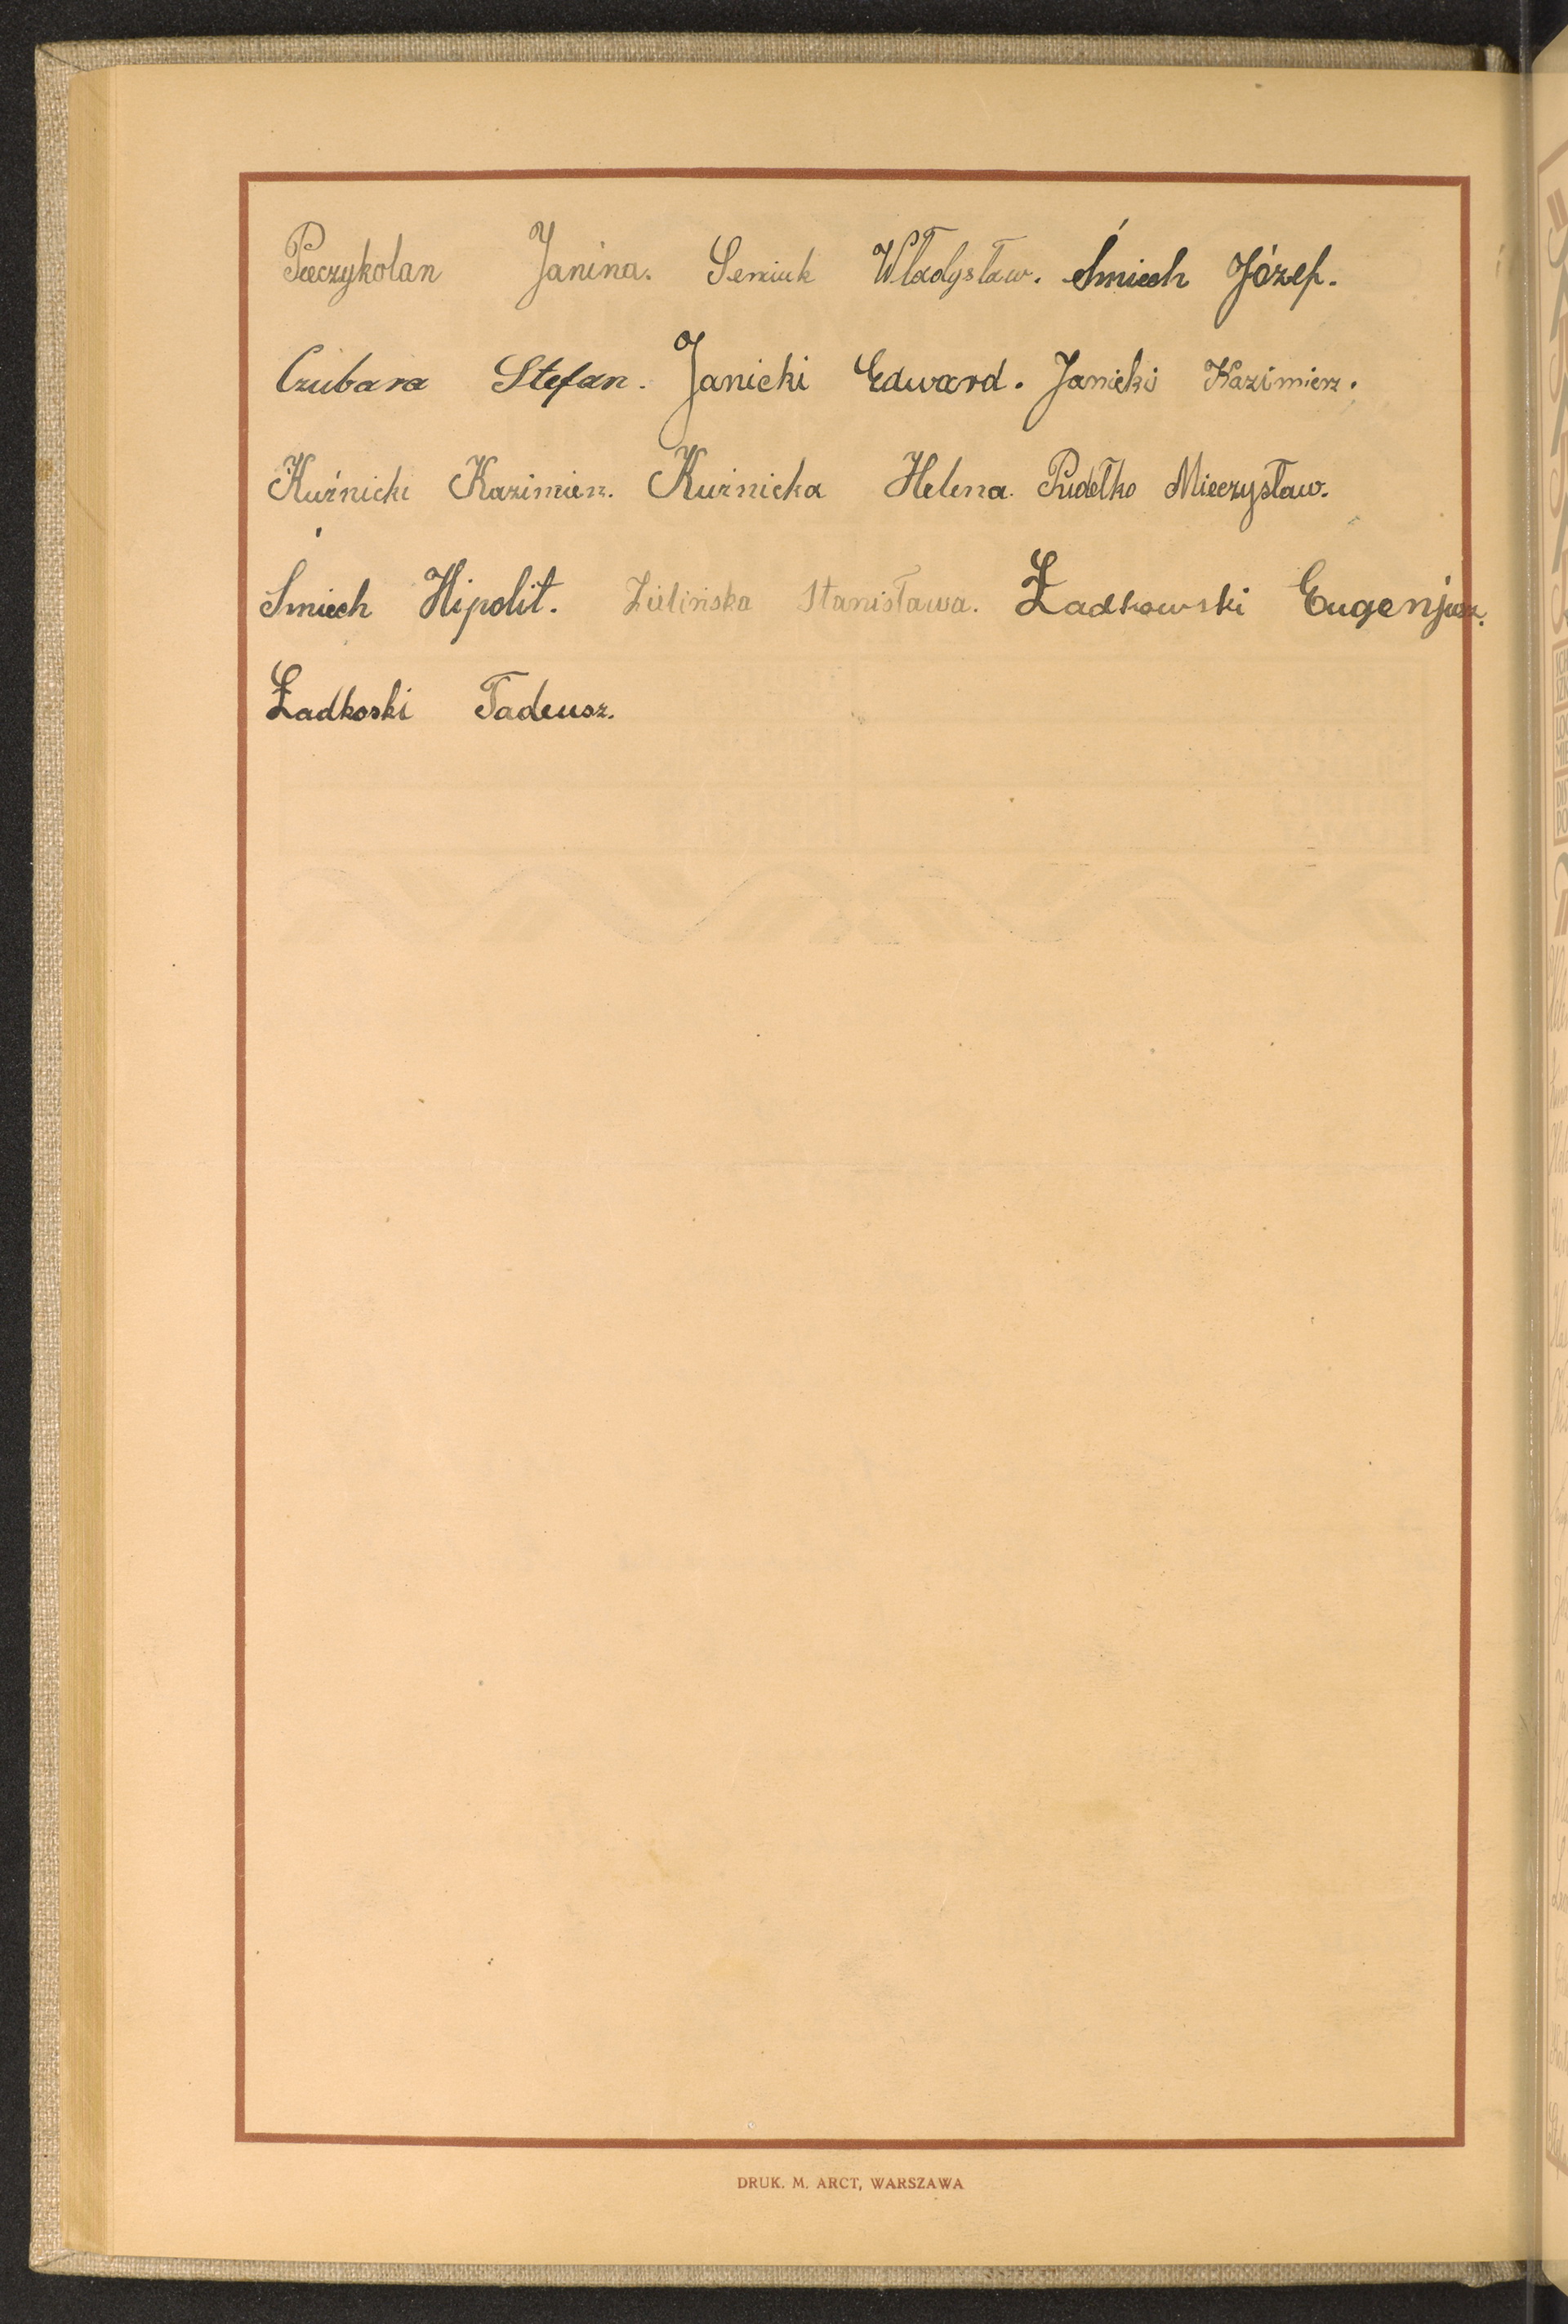 Pieczykolan Janina. Seniuk Władysław. Śmiech Józef.
Czubara Stefan. Janicki Edward. Janicki Kazimierz.
Kuźnicki Kazimierz. Kuźnicka Helena. Pudełko Mieczysław.
Śmiech Hipolit. Zielińska Stanisława. Żadkowski Eugenjusz.
Żadkoski Tadeusz.
DRUK. M. ARCT, WARSZAWA